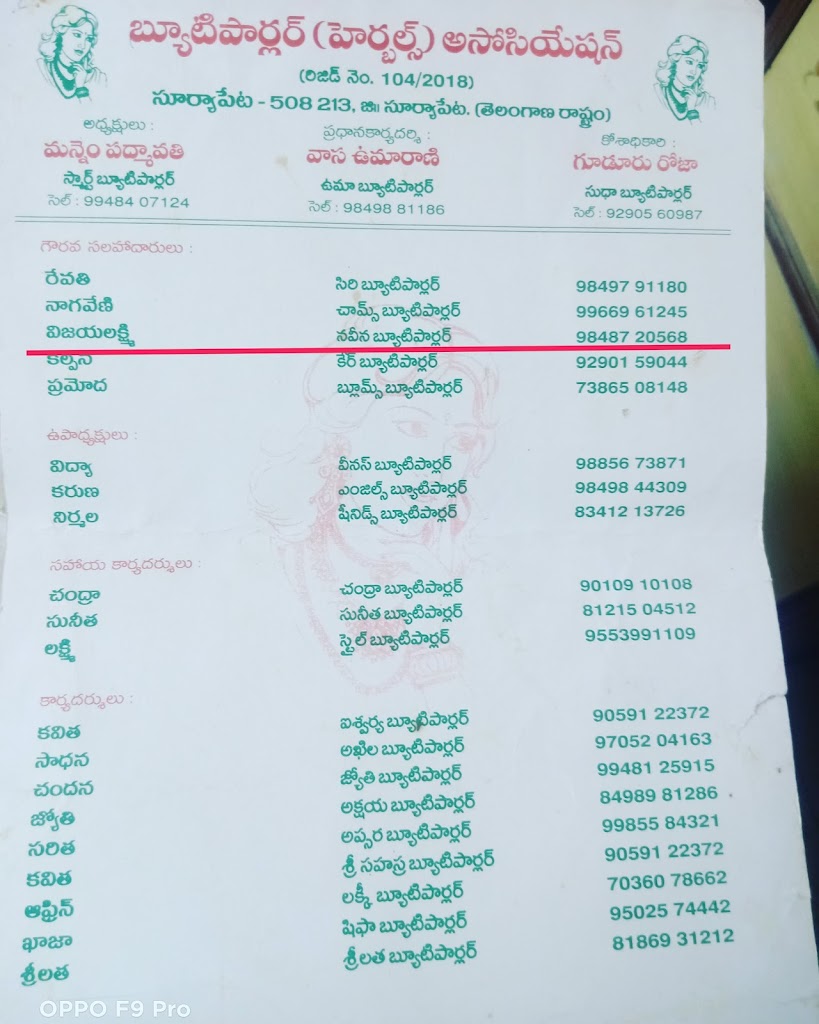 బ్యూటిపార్లర్ (హెర్బల్స్) అసోసియేషన్
(రిజిడ్ నెం. 104/2018)
సూర్యాపేట - 508 213, జిః సూర్యాపేట. (తెలంగాణ రాష్ట్రం)
అధ్యక్షులు : ప్రధానకార్యదర్శి : కోశాధికారి :
మన్నెం పద్మావతి వాస ఉమారాణి గూడూరు రోజా
స్మార్ట్ బ్యూటిపార్లర్ ఉమా బ్యూటిపార్లర్ సుధా బ్యూటిపార్లర్
సెల్ : 99484 07124 సెల్ : 98498 81186 సెల్ : 92905 60987
గౌరవ సలహాదారులు :
రేవతి సిరి బ్యూటిపార్లర్ 98497 91180
నాగవేణి చామ్స్ బ్యూటిపార్లర్ 99669 61245
విజయలక్ష్మి నవీన బ్యూటిపార్లర్ 98487 20568
కల్పన కేర్ బ్యూటిపార్లర్ 92901 59044
ప్రమోద బ్లూమ్స్ బ్యూటిపార్లర్ 73865 08148
ఉపాధ్యక్షులు :
విద్యా వీనస్ బ్యూటిపార్లర్ 98856 73871
కరుణ ఎంజిల్స్ బ్యూటిపార్లర్ 98498 44309
నిర్మల షీనిడ్స్ బ్యూటిపార్లర్ 83412 13726
సహాయ కార్యదర్శులు :
చంద్రా చంద్రా బ్యూటిపార్లర్ 90109 10108
సునీత సునీత బ్యూటిపార్లర్ 81215 04512
లక్ష్మి స్టైల్ బ్యూటిపార్లర్ 9553991109
కార్యదర్శులు :
కవిత ఐశ్వర్య బ్యూటిపార్లర్ 90591 22372
సాధన అఖిల బ్యూటిపార్లర్ 97052 04163
చందన జ్యోతి బ్యూటిపార్లర్ 99481 25915
జ్యోతి అక్షయ బ్యూటిపార్లర్ 84989 81286
సరిత అప్సర బ్యూటిపార్లర్ 99855 84321
కవిత శ్రీ సహస్ర బ్యూటిపార్లర్ 90591 22372
ఆఫ్రిన్ లక్కీ బ్యూటిపార్లర్ 70360 78662
ఖాజా షిఫా బ్యూటిపార్లర్ 95025 74442
శ్రీలత శ్రీలత బ్యూటిపార్లర్ 81869 31212
OPPO F9 Pro